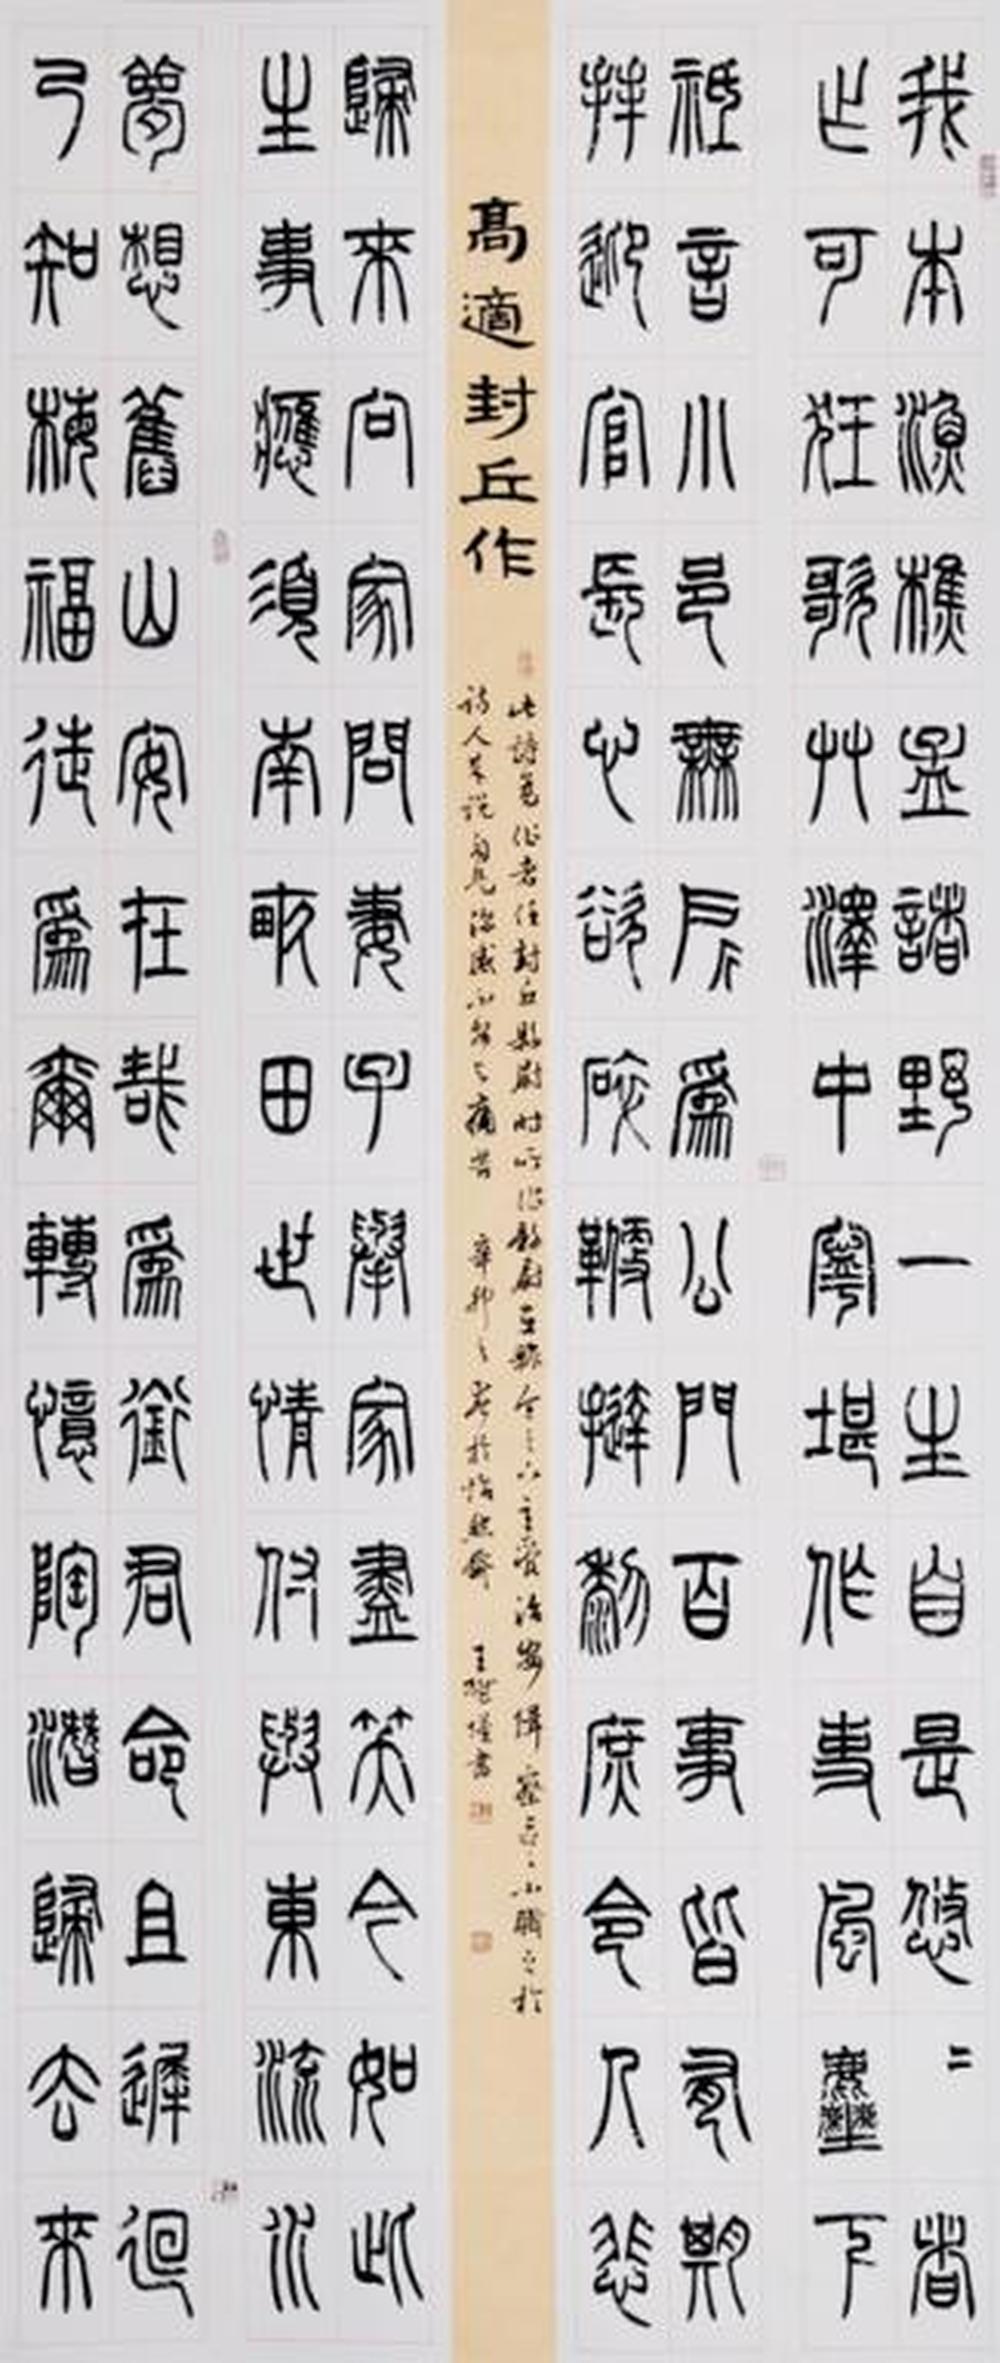 我本漁樵孟諸野一生自是悠〻者
乍可狂歌艸澤中寧堪作吏風塵下
祗言小邑無所為公門百事皆有期
拜迎官長心欲碎鞭撻黎庶令人悲
高適封丘作
此詩是作者任封丘縣尉時所作縣尉主縣令之下主管治安偵察 之小職 於
詩人來說自 深感 痛苦 辛卯之 於怡然齋 王 書
歸來向家問妻子舉家盡笑今如此
生事應須南畝田世情付與東流水
夢想舊山安在哉為銜君命且遲迴
乃知梅福徒為爾轉憶陶潛歸去來